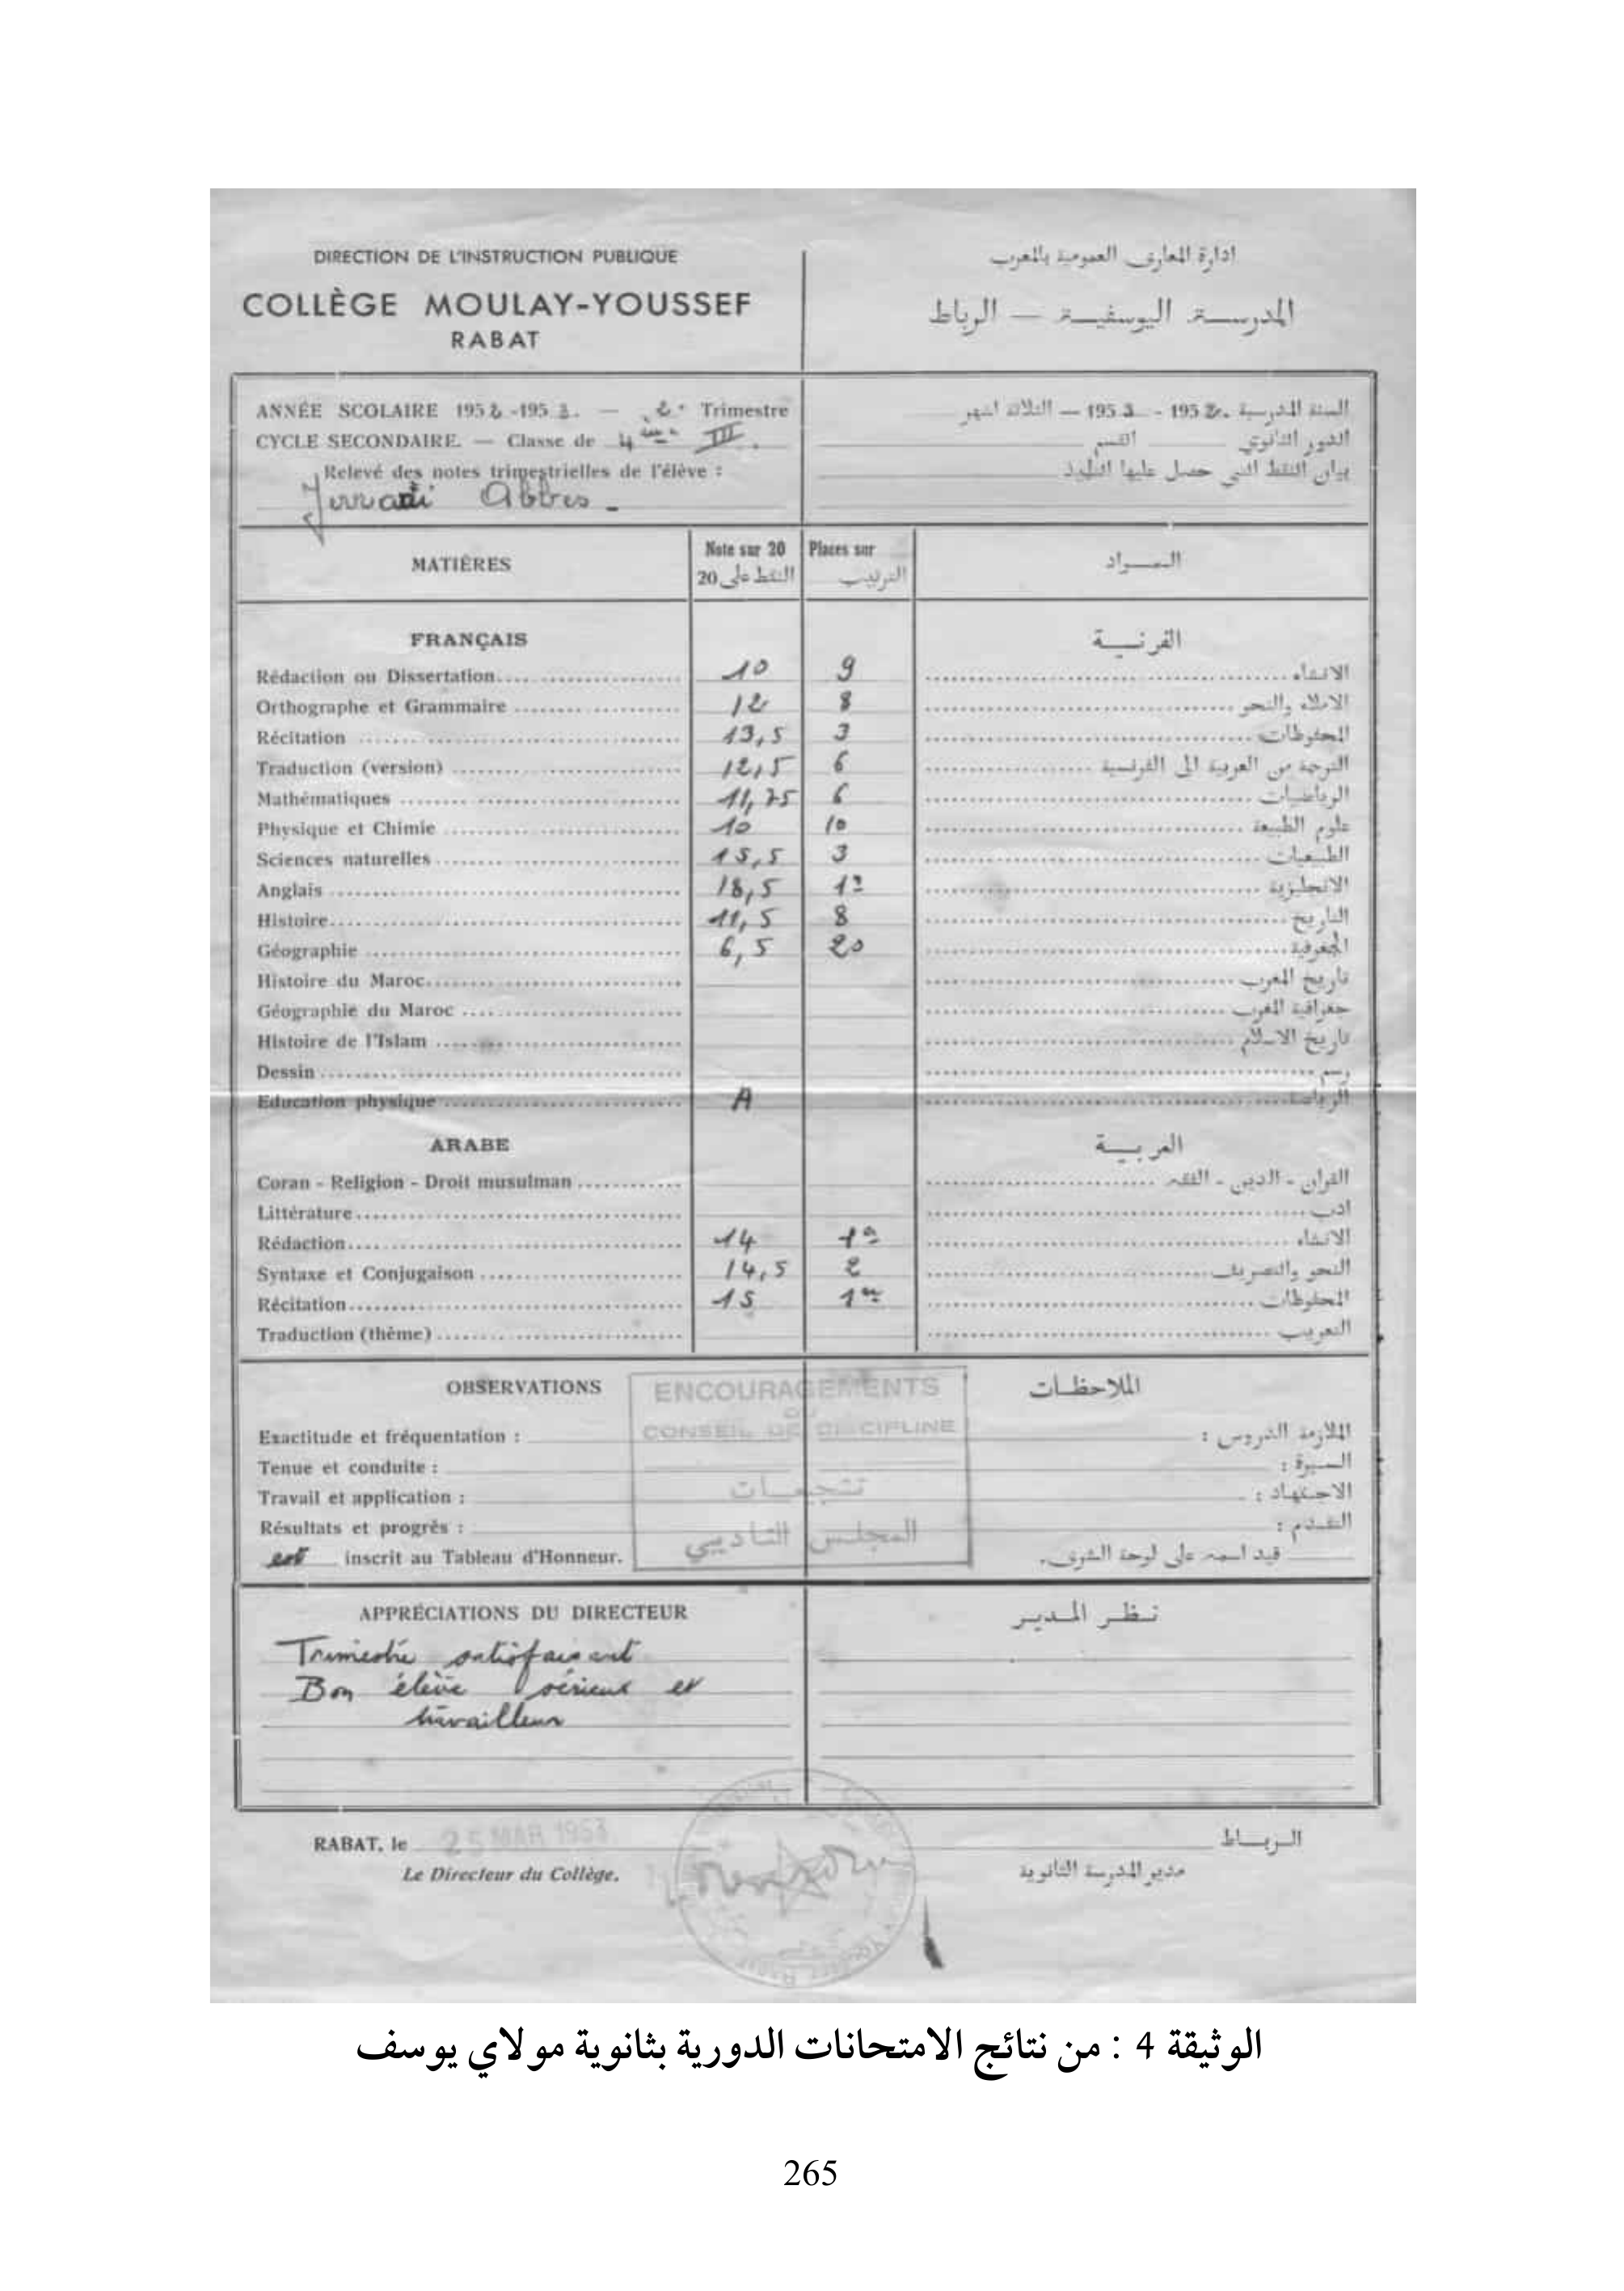 DIRECTION DE L'INSTRUCTION PUBLIQUE
COLLÈGE MOULAY-YOUSSEF
RABAT
ادارة المعارف العمومية بالمغرب
المدرسة اليوسفية — الرباط
ANNÉE SCOLAIRE 1952-1953. — 2e Trimestre
CYCLE SECONDAIRE. — Classe de 4ème III.
Relevé des notes trimestrielles de l'élève :
Jerrari Abbes
السنة المدرسية 1952 - 1953 — الثلاثة اشهر
الدور الثانوي القسم
بيان النقط التي حصل عليها التلميذ
MATIÈRES Note sur 20 Places sur المواد
النقط على 20 الترتيب
FRANÇAIS الفرنسية
Rédaction ou Dissertation 10 9 الانشاء
Orthographe et Grammaire 12 8 الاملاء والنحو
Récitation 13,5 3 المحفوظات
Traduction (version) 12,5 6 الترجمة من العربية الى الفرنسية
Mathématiques 11,75 6 الرياضيات
Physique et Chimie 10 10 علوم الطبيعة
Sciences naturelles 15,5 3 الطبيعيات
Anglais 18,5 1er الانجليزية
Histoire 11,5 8 التاريخ
Géographie 6,5 20 الجغرفية
Histoire du Maroc تاريخ المغرب
Géographie du Maroc جغرافية المغرب
Histoire de l'Islam تاريخ الاسلام
Dessin رسم
Education physique A الرياضة
ARABE العربية
Coran - Religion - Droit musulman القرآن - الدين - الفقه
Littérature ادب
Rédaction 14 1er الانشاء
Syntaxe et Conjugaison 14,5 2 النحو والتصريف
Récitation 15 1er المحفوظات
Traduction (thème) التعريب
OBSERVATIONS الملاحظات
ENCOURAGEMENTS
DU
CONSEIL DE DISCIPLINE
تشجيعات
المجلس التاديبي
Exactitude et fréquentation : الملازمة الدروس :
Tenue et conduite : السيرة :
Travail et application : الاجتهاد :
Résultats et progrès : التقدم :
est inscrit au Tableau d'Honneur. قيد اسمه على لوحة الشرف.
APPRÉCIATIONS DU DIRECTEUR نظر المدير
Trimestre satisfaisant
Bon élève sérieux et
travailleur
RABAT, le 25 MAR 1953 الرباط
Le Directeur du Collège. مدير المدرسة الثانوية
الوثيقة 4 : من نتائج الامتحانات الدورية بثانوية مولاي يوسف
265